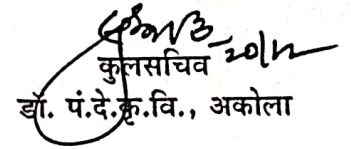 20/12
कुलसचिव
डॉ. पं.दे.कृ.वि., अकोला